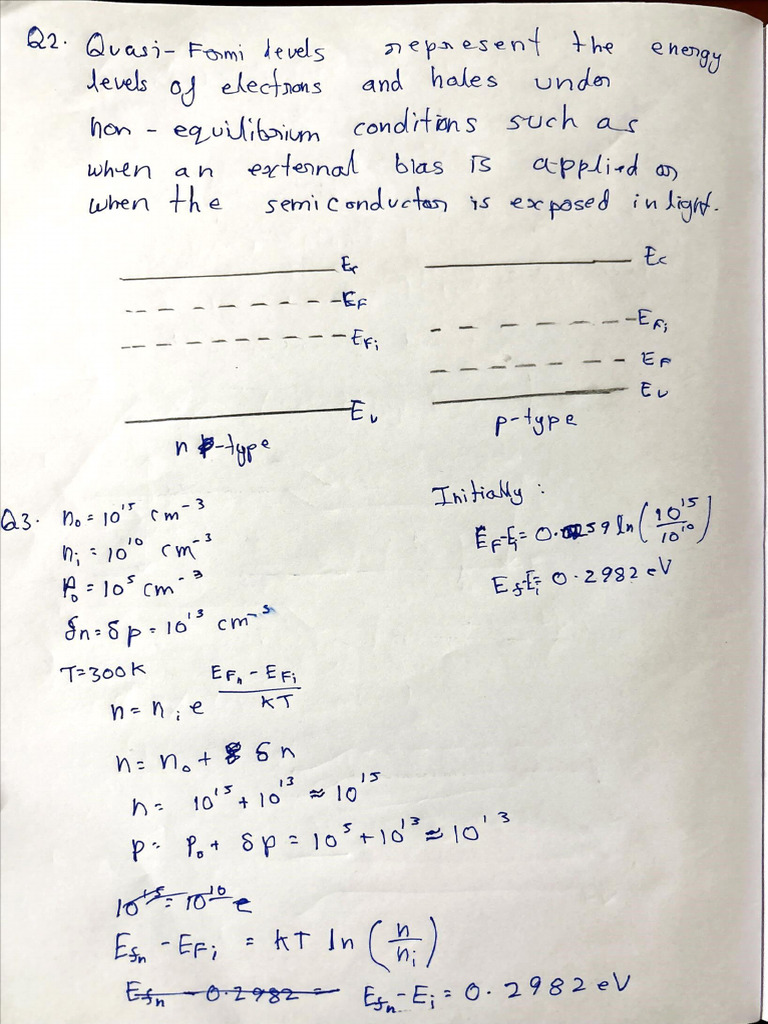 Q2. Quasi-Fermi levels represent the energy
levels of electrons and holes under
non-equilibrium conditions such as
when an external bias is applied or
when the semiconductor is exposed in light.
Ec
EF
EFi
Ev
n-type
Ec
EFi
EF
Ev
p-type
Q3. n₀ = 10¹⁵ cm⁻³
ni = 10¹⁰ cm⁻³
P₀ = 10⁵ cm⁻³
δn = δp = 10¹³ cm⁻³
T = 300K
Initially :
EF-Ei = 0.0259 ln(10¹⁵/10¹⁰)
Ef-Ei = 0.2982 eV
n = ni e^(EFn - EFi / KT)
n = n₀ + δn
n = 10¹⁵ + 10¹³ ≈ 10¹⁵
p = P₀ + δp = 10⁵ + 10¹³ ≈ 10¹³
10¹⁵ = 10¹⁰ e
Efn - EFi = KT ln(n/ni)
Efn - 0.2982 =
Efn - Ei = 0.2982 eV